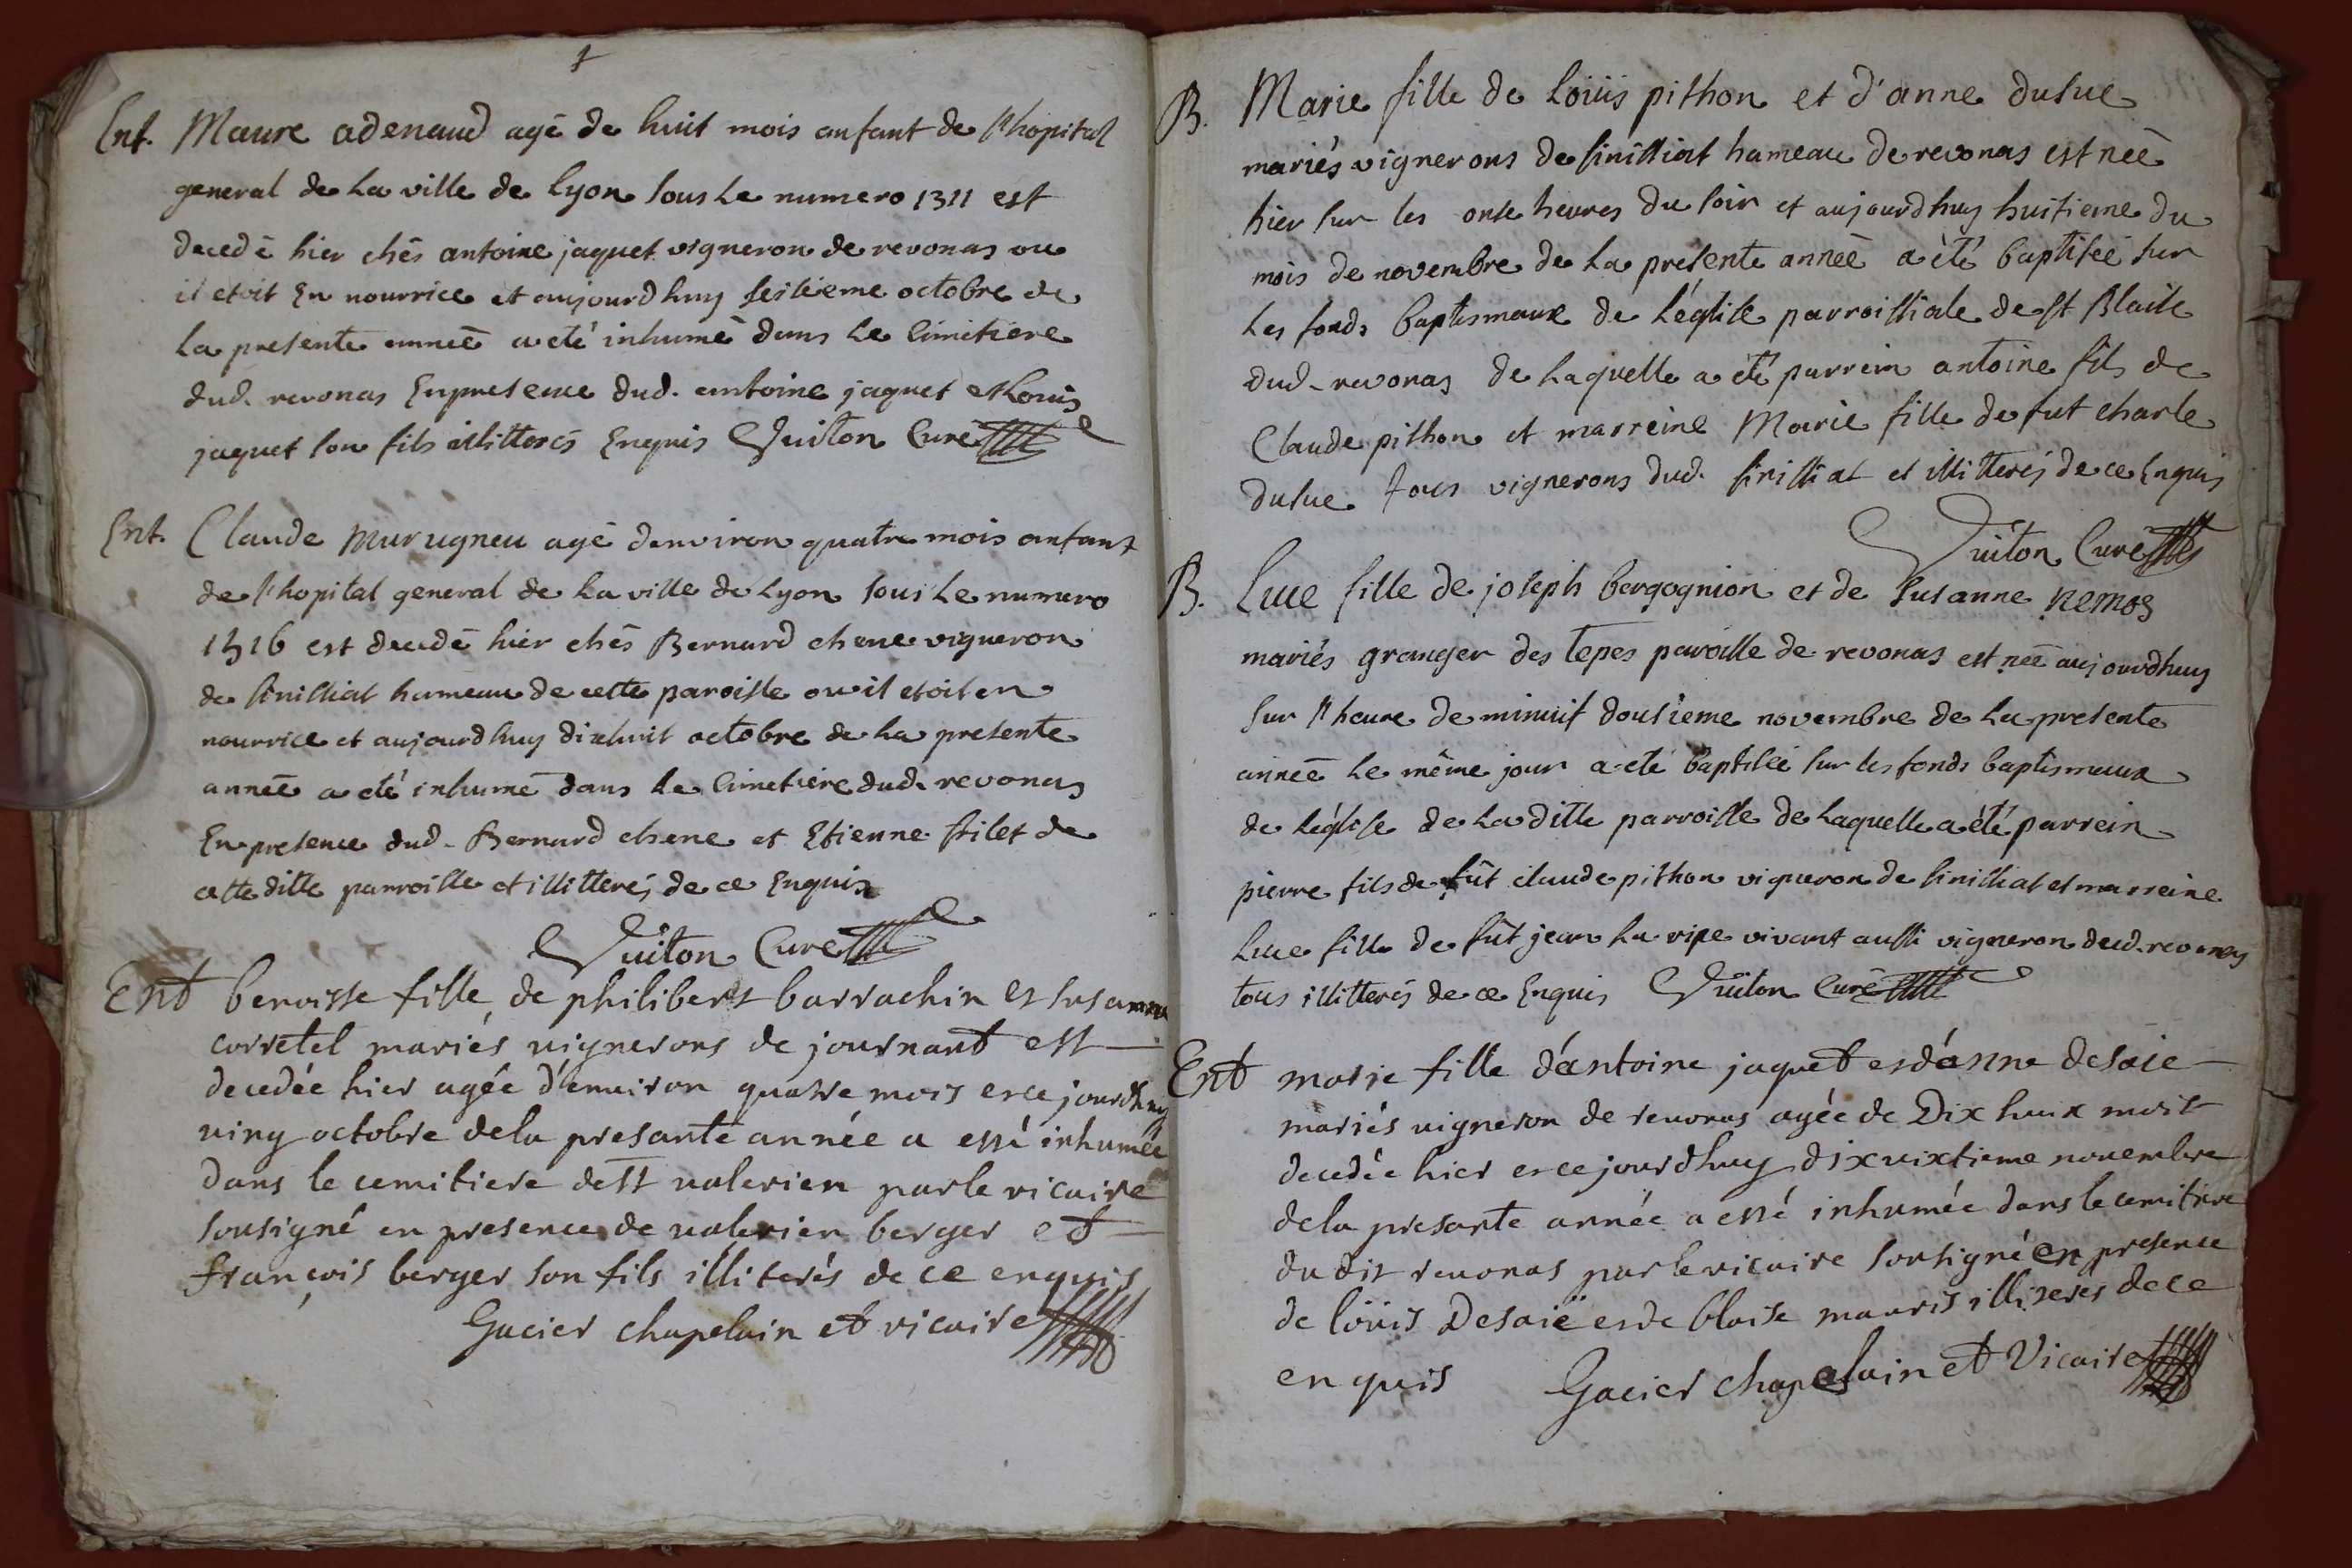 Ent. Maure adenaud agé de huit mois enfant de l'hopital
general de la ville de lyon sous le numero 1311 est
decedé hier chés antoine jaquet vigneron de revonas ou
il etoit En nourrice et aujourdhuy seisieme octobre de
la presente année a eté inhumé dans le cimetiere
dud. revonas En presence dud. antoine jaquet et Louis
jaquet son fils illitterés Enquis Vuiton Curé
Ent. Claude Murugneu agé denviron quatre mois enfant
de l'hopital general de la ville de Lyon sous le numero
1516 est decedé hier chés Bernard chene vigneron
de sinissiat hameau de cette paroisse ou il etoit en
nourrice et aujourdhuy dixhuit octobre de la presente
année a eté inhumé dans le cimetiere dud. revonas
En presence dud. Bernard chene et Etienne filet de
cette ditte parroisse et illitterés de ce Enquis
Vuiton Curé
Ent benoisse fille de philibert barrachin et susanne
corretel mariés vignerons de journant est
decedée hier agée d'environ quatre mois et ce jourdhuy
ving octobre de la presante année a eté inhumée
dans le cemitiere de st valerien par le vicaire
sousigné en presence de valerien berger et
françois berger son fils illiterés de ce enquis
Gacier chapelain et vicaire
B. Marie fille de Loüis pithon et d'anne dusue
mariés vignerons de sinissiat hameau de revonas est neé
hier sur les onse heures du soir et aujourdhuy huitieme du
mois de novembre de la presente anneé a été baptiseé sur
les fonds baptismaux de l'église parroissiale de st Blaise
dud. revonas de laquelle a été parrein antoine fils de
Claude pithon et marreine Marie fille de fut charle
dusue tous vignerons dud. sinissiat et illitterés de ce Enquis
Vuiton Curé
B. Luce fille de joseph bergognion et de susanne nemos
mariés granger des tepes paroisse de revonas est neé aujourdhuy
sur l'heure de minuit dousieme novembre de la presente
anneé le même jour a eté baptiseé sur les fonds baptismaux
de l'église de la ditte parroisse de laquelle a été parrein
pierre fils de fût claude pithon vigneron de sinissiat et marreine
Luce fille de fût jean la ripe vivant aussi vigneron dud. revonas
tous illitterés de ce Enquis Vuiton Curé
Ent marie fille d'antoine jaquet et d'anne desaie
mariés vigneron de revonas agée de Dix huix mois
decedée hier et ce jourdhuy dixuixtieme novembre
de la presante année a eté inhumée dans le cemitiere
du dit revonas par le vicaire sousigné en presence
de loüis Desaië et de blaise mauris illiterés de ce
enquis Gacier chapelain et Vicaire